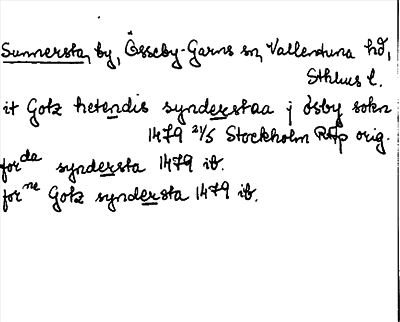 Sunnersta, by, Össeby-Garns sn, Vallentuna hd,
Sthlms l.
it Gotz hetendis synderstaa j ösby sokn
1479 21/5 Stockholm RAp orig.
forda syndersta 1479 ib.
forne Gotz syndersta 1479 ib.